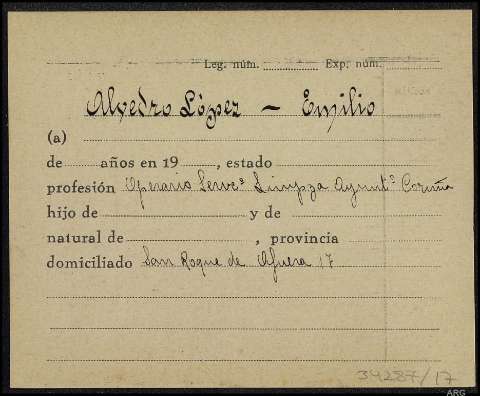 Leg. núm. Exp. núm.
Alvedro López - Emilio
(a)
de años en 19 , estado
profesión Operario Servcº Limpza Ayuntº Coruña
hijo de y de
natural de , provincia
domiciliado San Roque de Afuera 17
34287/17
ARG